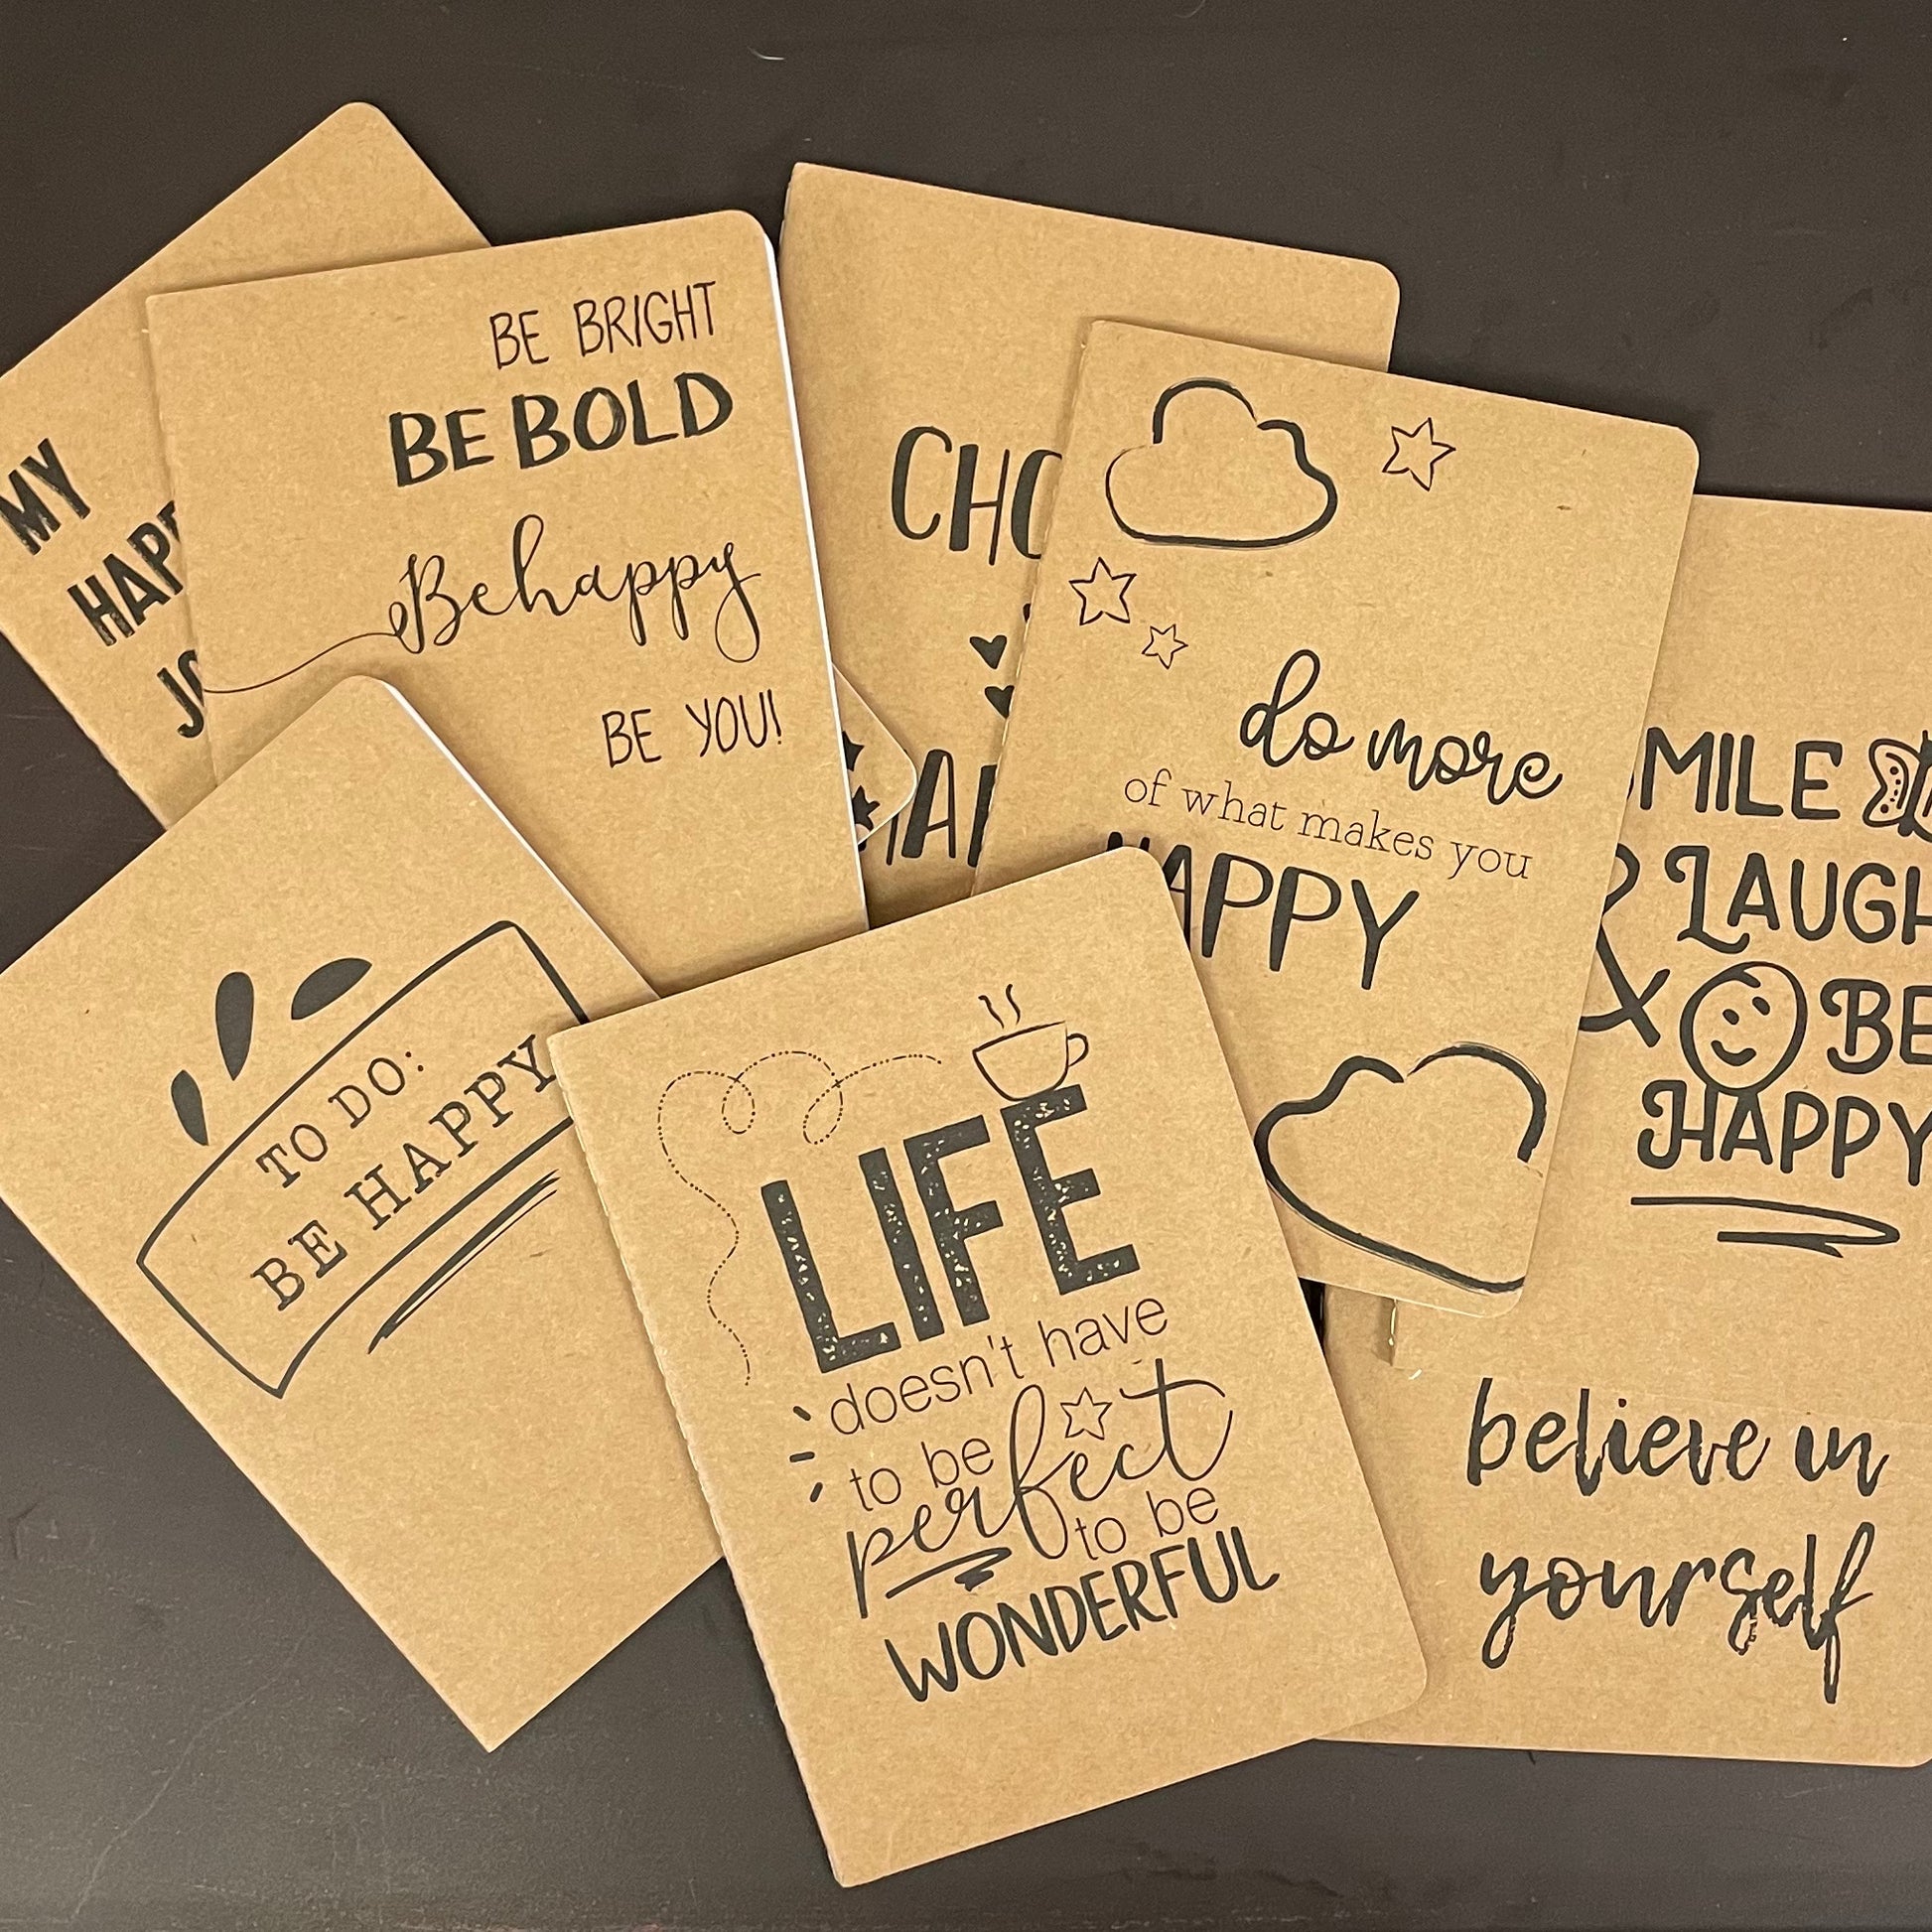 MY
BE BRIGHT
BE BOLD
Be happy
BE YOU!
do more
of what makes you
HAPPY
SMILE
& LAUGH
BE
HAPPY
TO DO:
BE HAPPY
LIFE
doesn't have
to be
perfect
to be
WONDERFUL
believe in
yourself